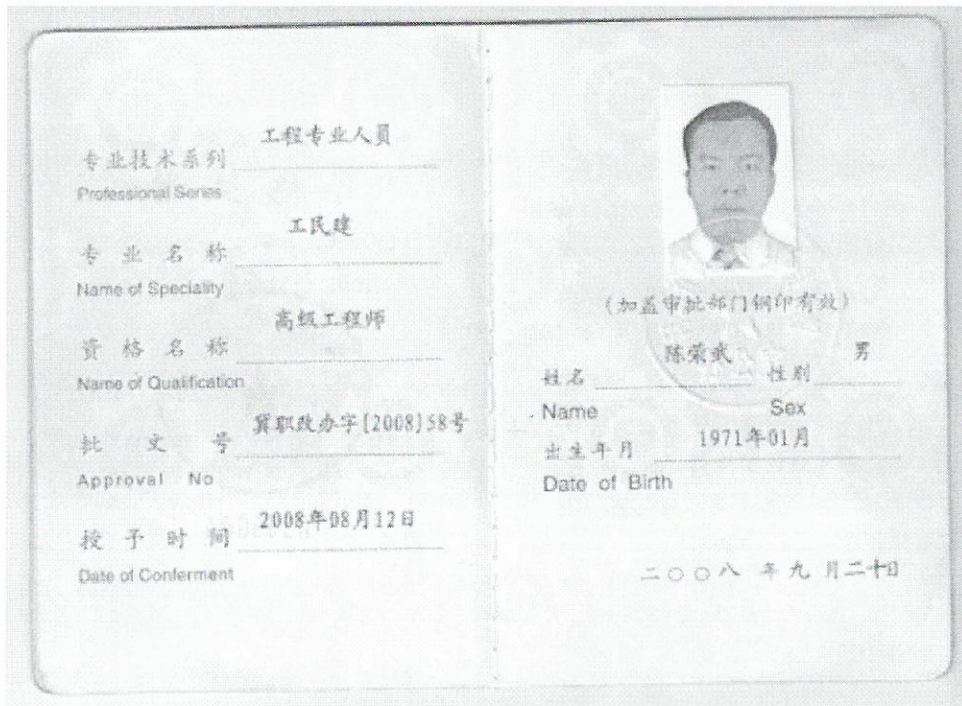 专业技术系列 工程专业人員
Professional Series
专业名称 工民建
Name of Speciality
资格名称 高级工程师
Name of Qualification
批文号 冀职改办字[2008]58号
Approval No
授予时间 2008年08月12日
Date of Conferment
(加盖审批部门钢印有效)
姓名 陈荣武 性别 男
Name Sex
出生年月 1971年01月
Date of Birth
二〇〇八 年九 月二十日